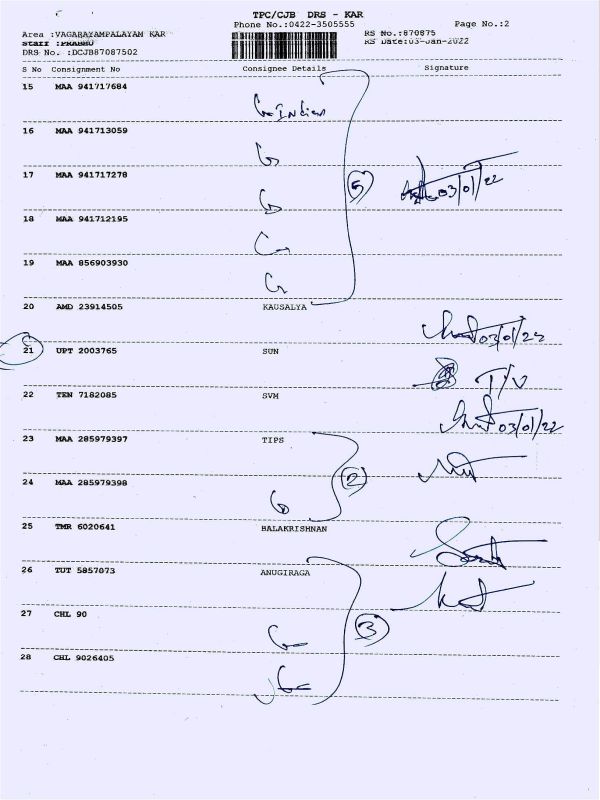 TPC/CJB DRS - KAR
Phone No.:0422-3505555 Page No.:2
Area :VAGARAYAMPALAYAM KAR RS No.:870875
Staff :PRABHU RS Date:03-Jan-2022
DRS No. :DCJB87087502
S No Consignment No Consignee Details Signature
15 MAA 941717684
16 MAA 941713059
17 MAA 941717278
5
03/01/22
18 MAA 941712195
19 MAA 856903930
20 AMD 23914505 KAUSALYA
03/01/22
21 UPT 2003765 SUN
T/V
22 TEN 7182085 SVM
03/01/22
23 MAA 285979397 TIPS
2
24 MAA 285979398
25 TMR 6020641 BALAKRISHNAN
26 TUT 5857073 ANUGIRAGA
27 CHL 90
3
28 CHL 9026405